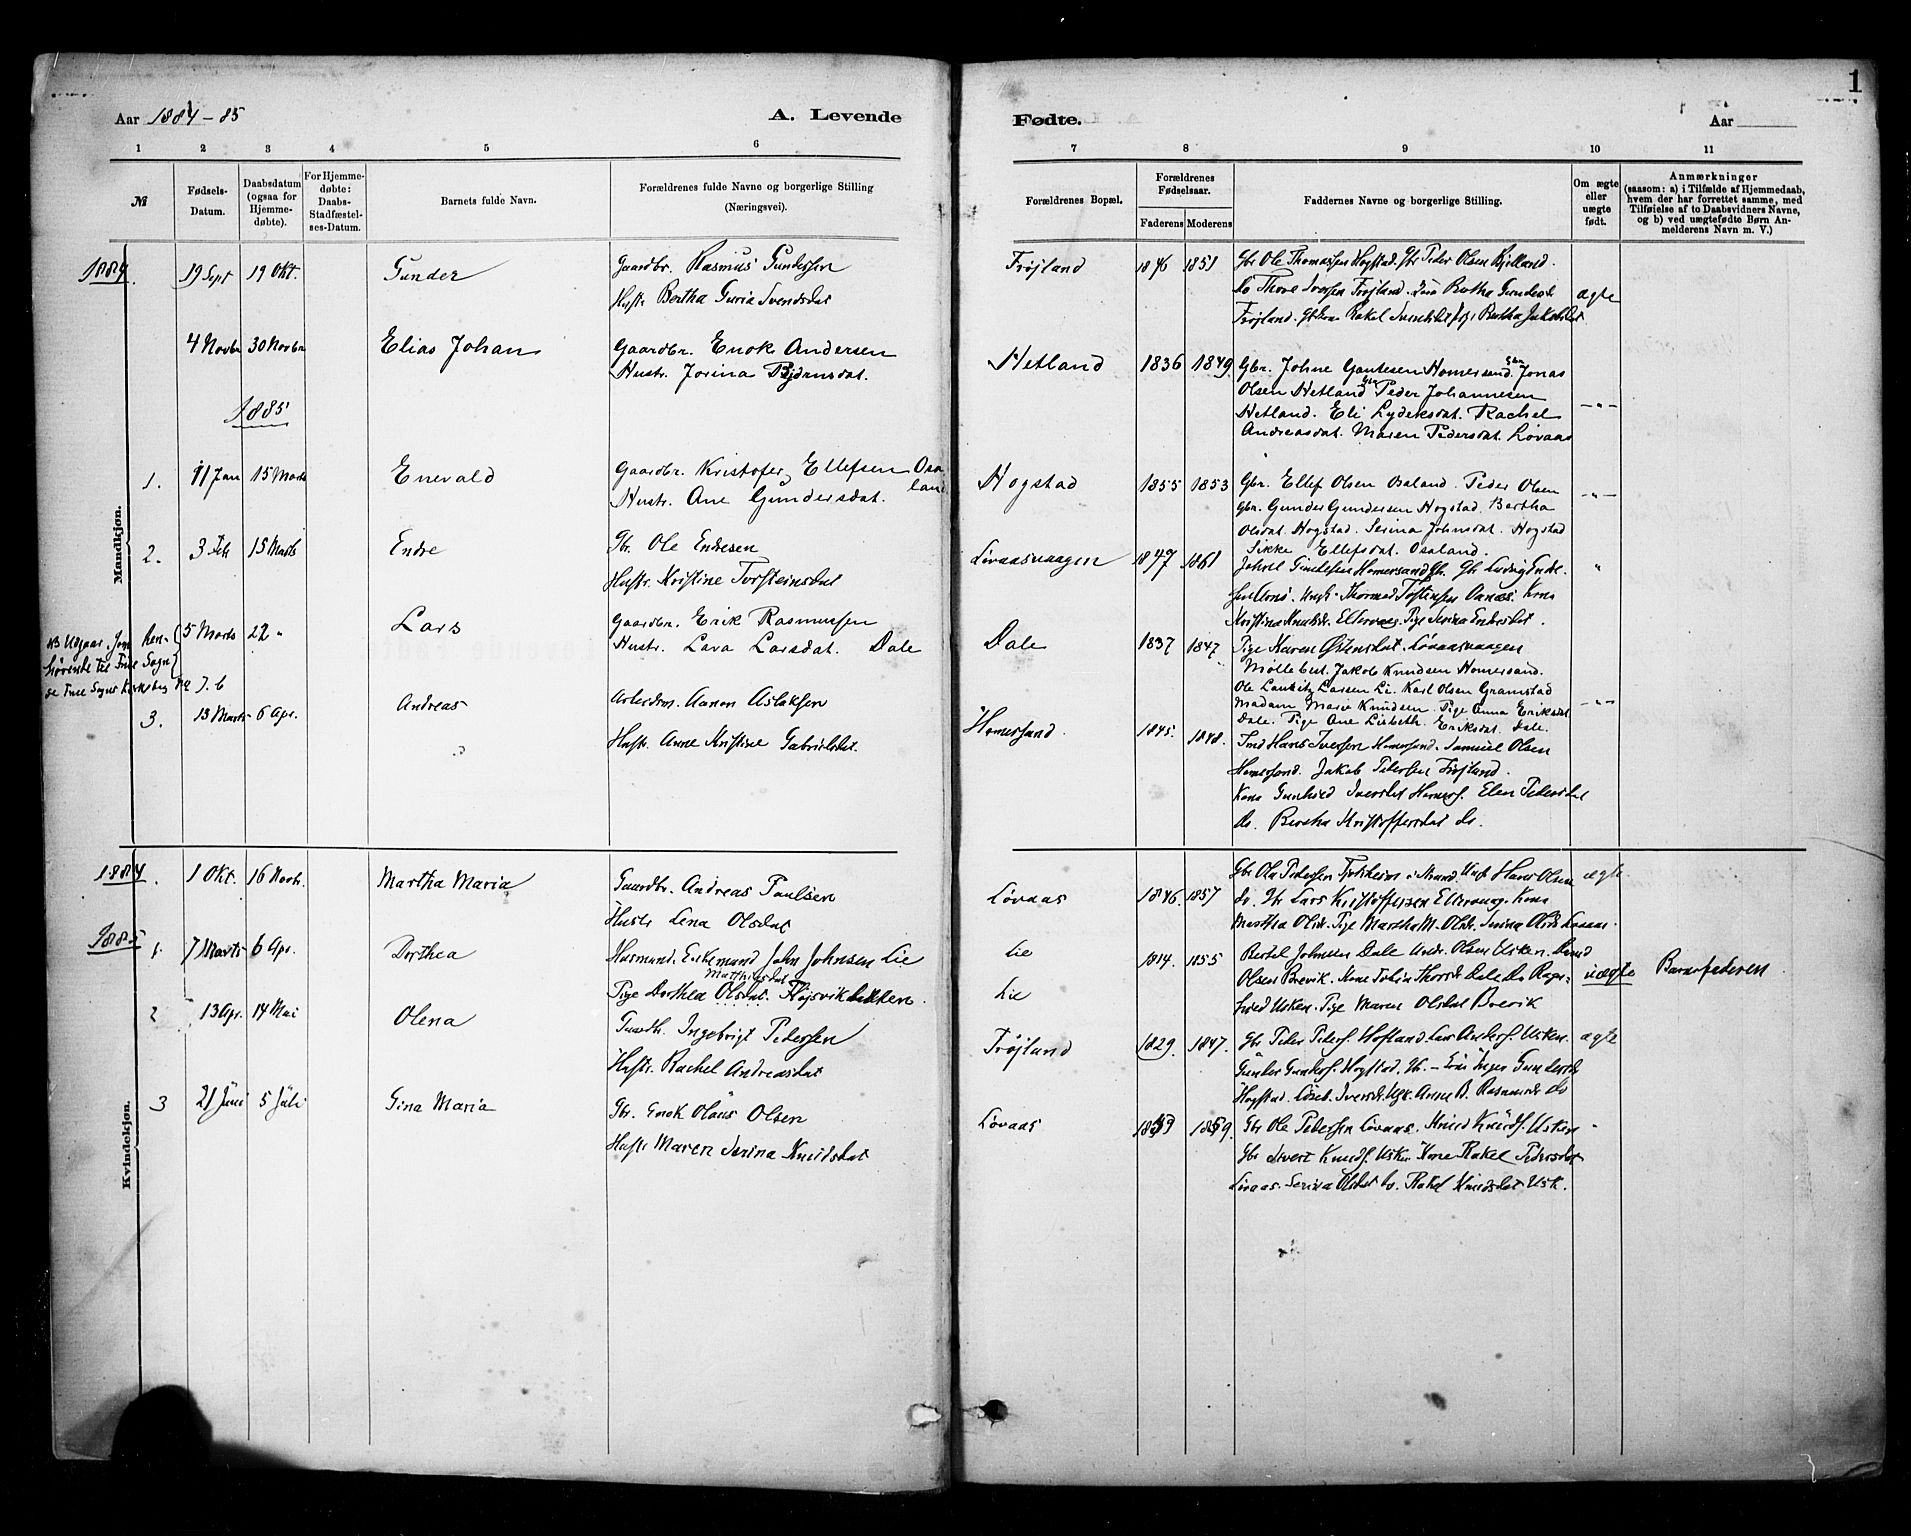 1
Aar 1884-85
A. Levende
Fødte.
Aar
1 2 3 4 5 6
7 8 9 10 11
№
Fødsels-Datum.
Daabsdatum (ogsaa for Hjemmedøbte).
For Hjemmedøbte: Daabs-Stadfæstelses-Datum.
Barnets fulde Navn.
Forældrenes fulde Navne og borgerlige Stilling (Næringsvei).
Forældrenes Bopæl.
Forældrenes Fødselsaar.
Faderens Moderens
Faddernes Navne og borgerlige Stilling.
Om ægte eller uægte født.
Anmærkninger
(saasom: a) i Tilfælde af Hjemmedaab, hvem der har forrettet samme, med Tilføielse af to Daabsvidners Navne, og b) ved uægtefødte Børn Anmelderens Navn m. V.)
Mandkjøn.
1884.
19 Sept 19 Okt. Gunder Gaardbr. Rasmus Gundersen Frøjland 1846 1851 Gbr Ole Thomassen Hogstad. Gbr Peder Olsen Bjelland.
Hustr. Bertha Guria Svendsdat Do Thore Iversen Frøjland. Bertha Gundersd. ægte
Frøjland. Rakel Bertha Jakobsdat
4 Novbr 30 Novbr Elias Johan Gaardbr. Enok Andersen Hetland 1836 1849. Gbr. Johne Gautesen Homersand. Gbr Jonas
Hustr. Jorina Bjørnsdat. Olsen Hetland Gbr Peder Johannesen
Hetland. Eli Lydeksdat. Rachel —"—
Andreasdat. Maren Pedersdat. Løvaas
1885
1. 11 Jan 15 Marts Enevald Gaardbr. Kristofer Ellefsen Osaland Hogstad 1855 1853 Gbr. Ellef Olsen Osaland. Peder Olsen
Hustr. Ane Gundersdat. gbr. Gunder Gundersen Hogstad. Bertha —"—
Olsdat. Hogstad. Serina Johnsdat. Hogstad
Sikke Ellefsdat. Osaland.
2. 3 Feb 15 Marts Endre Gbr. Ole Endresen Løvaasvaagen 1847 1861 Homersand Gbr. "
Hustr. Kristine Torsteinsdat Ungk. Thormod Kona
Kristine Eltervaag. Pige Serina Endresdat.
NB Udgaar. Jon hen-
hørende til Frue Sogn
se Frue Sogns Kirkebog pa J. 6
5 Marts 22 " Lars Gaardbr. Erik Rasmussen Dale 1837 1847 Pige Karen Østensdat. Løvaasvaagen
Hustr. Lava Larsdat. Dale Møllebest. Jakob Knudsen Homersand.
Ole Lauritz Larsen Li. Karl Olsen Gramstad
Madam Marie Knudsen. Pige Anna Eriksdat. —"—
Dale. Pige Ane Lisbeth Eriksdat. Dale.
3. 13 Marts 6 Apr. Andreas Arbeidsm. Aanon Aslaksen Homersand. 1845. 1848. Hans Iversen Homersand. Samuel Olsen
Hustr. Anne Kristine Gabrielsdat Homersand. Jakob Pedersen Frøjland.
Kona Gunhild Iversdat Homers. Elen Pedersdat
do. Bertha Kristoffersdat do.
Kvindekjøn.
1884. 1 Okt. 16 Novbr. Martha Maria Gaardbr. Andreas Paulsen Løvaas 1846. 1857 Gbr Ole Pedersen Strand. Ungk Hans Olsen ægte
Hustr Lena Olsdat do. Gbr Lars Kristoffersen Eltervaag. Kona
Martha Olsdr. Pige Martha M. Olsdr. Serina Olsdr Løvaas.
1885 1. 7 Marts 6 Apr. Dorthea Husmand. Enkemand John Johnsen Lie Lie 1814. 1855 Bertel Johnsen Dale Andr. Olsen Usken. Svend
Pige Dorthea Mathiasdat Olsdat. Højsvikbakken. Lie Olsen Brevik. Kone Dale Do Ragn- uægte Barnefaderen
hild Usken. Pige Maren Olsdat Brevik
2 13 Apr. 14 Mai Olena Gaardb. Ingebrigt Pedersen Frøjland 1829. 1847. Gbr Peder Peders. Hofland. Lars Anders. Usken. ægte
Hustr. Rachel Andreasdat Gunder Gunders. Hogstad. Gbr. - Inger Gundersd.
Hogstad. Iversdr. Anne B. Rasmusdr do
3 21 Juni 5 Juli Gina Maria Gbr. Enok Olaus Olsen Løvaas 1859 1859. Gbr Ole Pedersen Løvaas. Knud Knuds. Usken "
Hustr Maren Serina Knudsdat Gbr Sivert Knuds. Usken Kone Rakel Pedersdat
Løvaas. Serina Olsdat do. Rakel Knudsdat Usk.